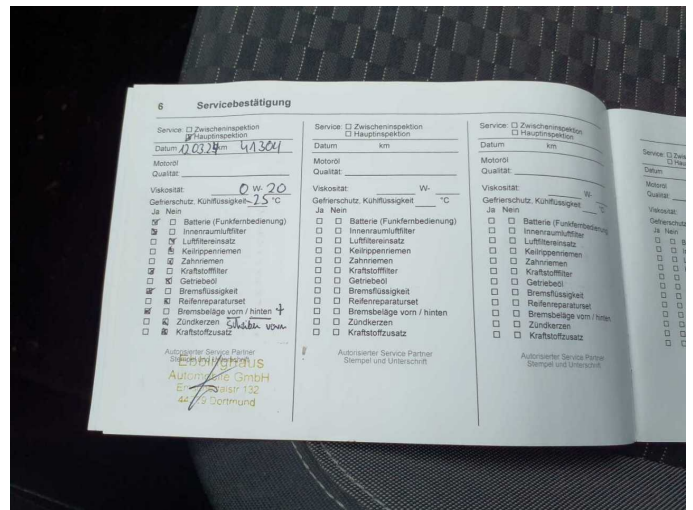 6 Servicebestätigung
Service: Zwischeninspektion
Hauptinspektion
Datum 12.03.24 km 41304
Motoröl
Qualität:
Viskosität: 0 W- 20
Gefrierschutz, Kühlflüssigkeit -25 °C
Ja Nein
Batterie (Funkfernbedienung)
Innenraumluftfilter
Luftfiltereinsatz
Keilrippenriemen
Zahnriemen
Kraftstofffilter
Getriebeöl
Bremsflüssigkeit
Reifenreparaturset
Bremsbeläge vorn / hinten +
Zündkerzen Scheiben vorn
Kraftstoffzusatz
Autorisierter Service Partner
Stempel und Unterschrift
Automobile GmbH
132
Dortmund
Service: Zwischeninspektion
Hauptinspektion
Datum km
Motoröl
Qualität:
Viskosität: W-
Gefrierschutz, Kühlflüssigkeit °C
Ja Nein
Batterie (Funkfernbedienung)
Innenraumluftfilter
Luftfiltereinsatz
Keilrippenriemen
Zahnriemen
Kraftstofffilter
Getriebeöl
Bremsflüssigkeit
Reifenreparaturset
Bremsbeläge vorn / hinten
Zündkerzen
Kraftstoffzusatz
Autorisierter Service Partner
Stempel und Unterschrift
Service: Zwischeninspektion
Hauptinspektion
Datum km
Motoröl
Qualität:
Viskosität: W-
Gefrierschutz, Kühlflüssigkeit
Ja Nein
Batterie (Funkfernbedienung)
Innenraumluftfilter
Luftfiltereinsatz
Keilrippenriemen
Zahnriemen
Kraftstofffilter
Getriebeöl
Bremsflüssigkeit
Reifenreparaturset
Bremsbeläge vorn / hinten
Zündkerzen
Kraftstoffzusatz
Autorisierter Service Partner
Stempel und Unterschrift
Service:
Datum
Motoröl
Qualität:
Viskosität:
Ja Nein